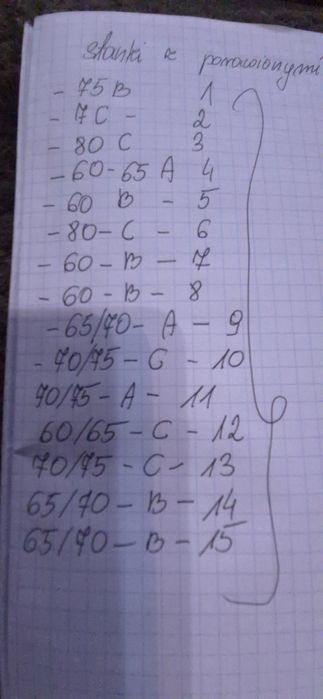 stanki z ponowionymi
- 75 B 1
- 7C - 2
- 80 C 3
- 60-65 A 4
- 60 B - 5
- 80 - C - 6
- 60 - B - 7
- 60 - B - 8
- 65/70 - A - 9
- 70/75 - C - 10
70/75 - A - 11
60/65 - C - 12
70/75 - C - 13
65/70 - B - 14
65/70 - B - 15